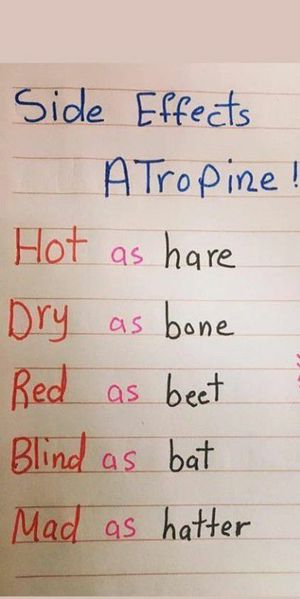 Side Effects
ATropine!
Hot as hare
Dry as bone
Red as beet
Blind as bat
Mad as hatter